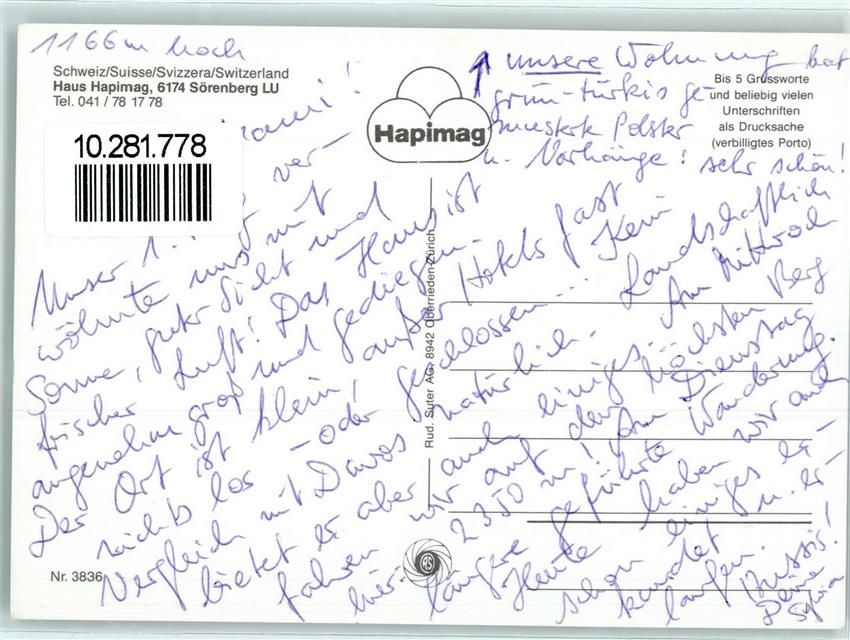 1166m hoch
Schweiz/Suisse/Svizzera/Switzerland
Haus Hapimag, 6174 Sörenberg LU
Tel. 041 / 78 17 78
10.281.778
Hapimag
unsere Wohnung hat
grün-türkis ge
musterte Polster
u. Vorhänge: sehr schön!
Bis 5 Grussworte
und beliebig vielen
Unterschriften
als Drucksache
(verbilligtes Porto)
Unser 1. ver-
wöhnte uns mit
Sonne, guter Sicht und
frischer Luft! Das Haus ist
angenehm groß und gediegen.
Der Ort ist klein, außer Hotels fast
nichts los – oder geschlossen... Kein
Vergleich mit Davos natürlich. Landschaftlich
bietet er aber auch einiges. Am Mittwoch
fahren wir auf den höchsten Berg
hier: 2350 m! Am Dienstag
längere geführte Wanderung.
Heute haben wir auch
schon einiges er-
kundet u. er-
laufen.
Bussis!
Deine
Rud. Suter AG, 8942 Oberrieden-Zürich
RS
Nr. 3836